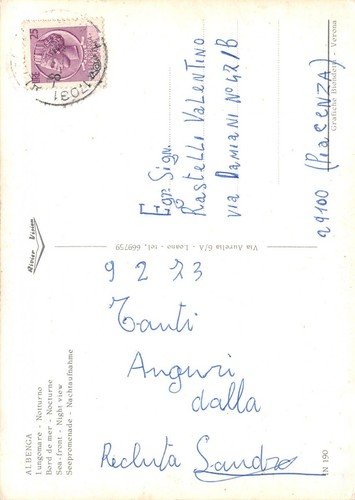 LIRE 25
17031
Egr. Sign.
Rastelli Valentino
via Damiani N° 42/B
29100 (PIACENZA)
Grafiche Biondetti - Verona
River Vision
Via Aurelia 6/A - Loano - tel. 669759
9 2 73
Tanti
Anguri
dalla
Recluta Sandro
ALBENGA
Lungomare - Notturno
Bord de mer - Nocturne
Sea-front - Night view
Seepromenade - Nachtaufnahme
N 190